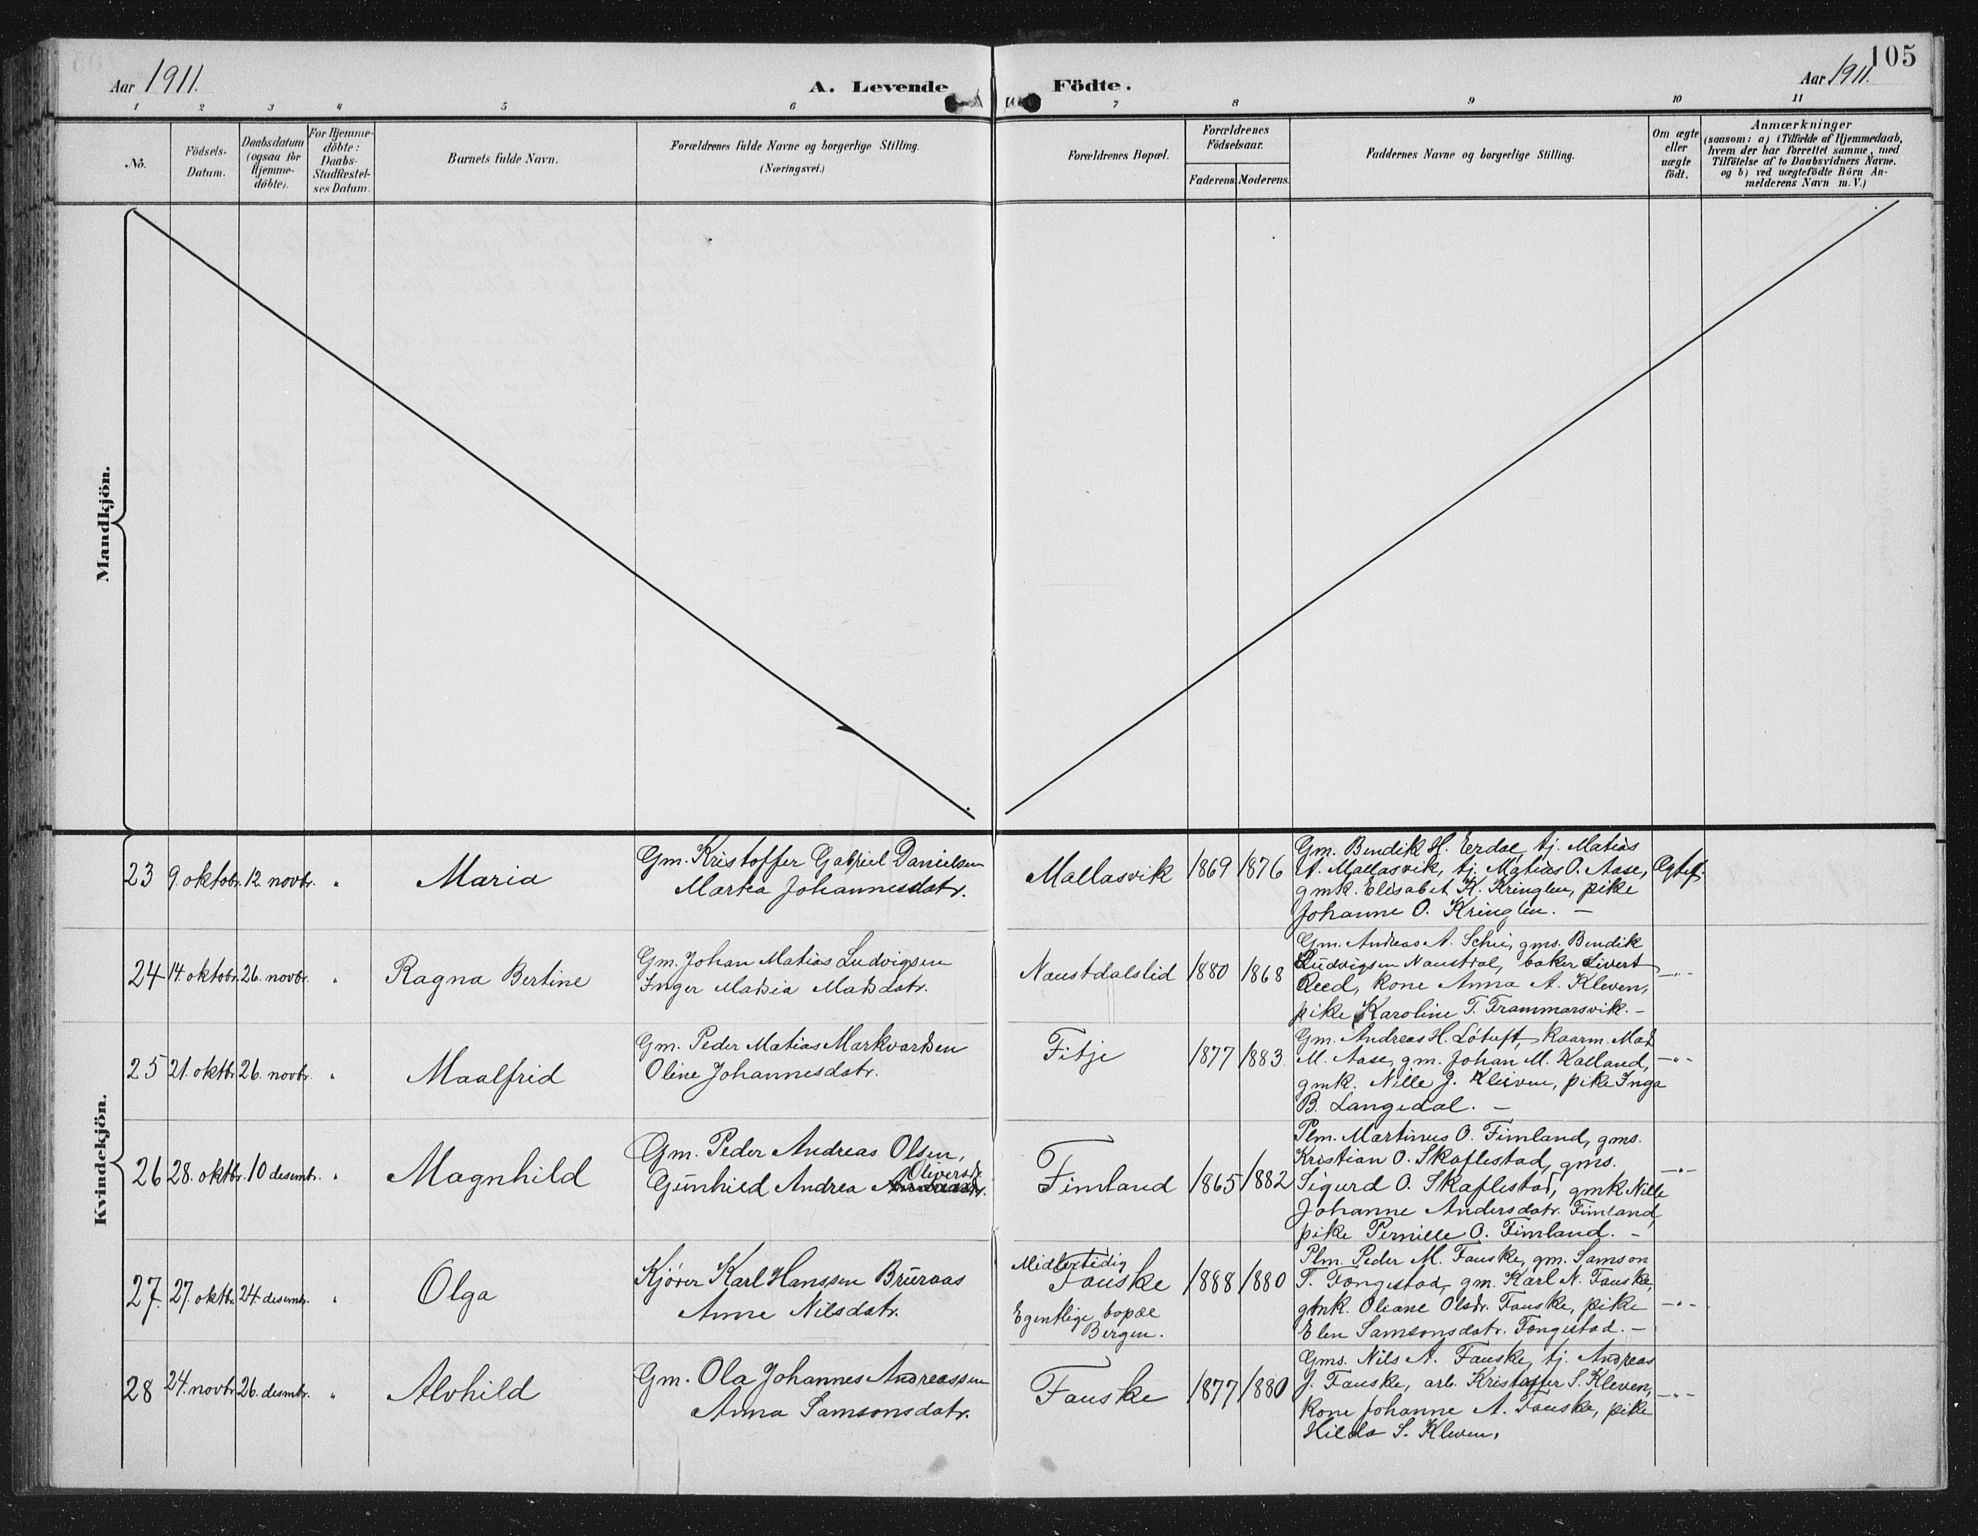 105
Aar 1911.
A. Levende
Födte.
Aar 1911.
1 2 3 4 5 6 7 8 9 10 11
No.
Födsels-
Datum.
Daabsdatum
(ogsaa for
Hjemme-
döbte).
For Hjemme-
döbte:
Daabs-
Stadfæstel-
ses Datum.
Barnets fulde Navn.
Forældrenes fulde Navne og borgerlige Stilling.
(Næringsvei.)
Forældrenes Bopæl.
Forældrenes
Födselsaar.
Faderens. Moderens.
Faddernes Navne og borgerlige Stilling.
Om ægte
eller
uægte
födt.
Anmærkninger
(saasom: a) i Tilfælde af Hjemmedaab,
hvem der har forrettet samme, med
Tilföielse af to Daabsvidners Navne.
og b) ved uægtefödte Börn An-
melderens Navn m. V.)
Mandkjön.
Kvindekjön.
23 9. oktobr. 12. novbr. " Maria
Gm. Kristoffer Gabriel Danielsen
Martea Johannesdatr.
Mallasvik 1869 1876
Gm. Bendik H. Erdal, tj. Matias
A. Mallasvik, tj. Matias O. Aase,
gmk. Elisabet K. Kringlen, pike
Johanne O. Kringlen. –
Egtef.
24 14. oktobr. 26. novbr. " Ragna Bertine
Gm. Johan Matias Ludvigsen
Inger Maria Madsdatr.
Naustdalslid 1880 1868
Gm. Andreas A. Schei, gms. Bendik
Ludvigsen Naustdal, baker Sivert
Reed, kone Anna A. Kleven,
pike Karoline T. Trammarsvik. –
–"–
25 21. oktbr. 26. novbr. " Maalfrid
Gm. Peder Matias Markvardsen
Oline Johannesdatr.
Fitje 1877 1883
Gm. Andreas H. Løtuft, kaarm. Mads
M. Aase, gm. Johan M. Kalland,
gmk. Nille J. Kleiven, pike Inga
B. Langedal. –
–"–
26 28. oktbr. 10 desembr. " Magnhild
Gm. Peder Andreas Olsen,
Oliversdr
Gunhild Andrea
Fimland 1865 1882
Plm. Martinus O. Fimland, gms.
Kristian O. Skaflestad, gms.
Sigurd O. Skaflestad, gmk Nille
Johanne Andersdatr. Fimland,
pike Pernille O. Fimland. –
–"–
27. 27. oktbr. 24 desembr. " Olga
Kjører Karl Hanssen Bruraas
Anne Nilsdatr.
Midlertidig
Fauske
Egentlige bopæl
Bergen.
1888 1880
Plm. Peder M. Fauske, gm. Samson
T. Fongestad, gm. Karl N. Fauske,
gmk. Oliane Olsdr. Fauske, pike
Elen Samsonsdatr. Fongestad. –
–"–
28 24. novbr. 26. desmbr. " Alvhild
Gm. Ola Johannes Andreassen
Anna Samsonsdatr.
Fauske 1877 1880
Gms. Nils A. Fauske, tj. Andreas
J. Fauske, arb. Kristoffer S. Kleven,
kone Johanne A. Fauske, pike
Hilda S. Kleven.
–"–